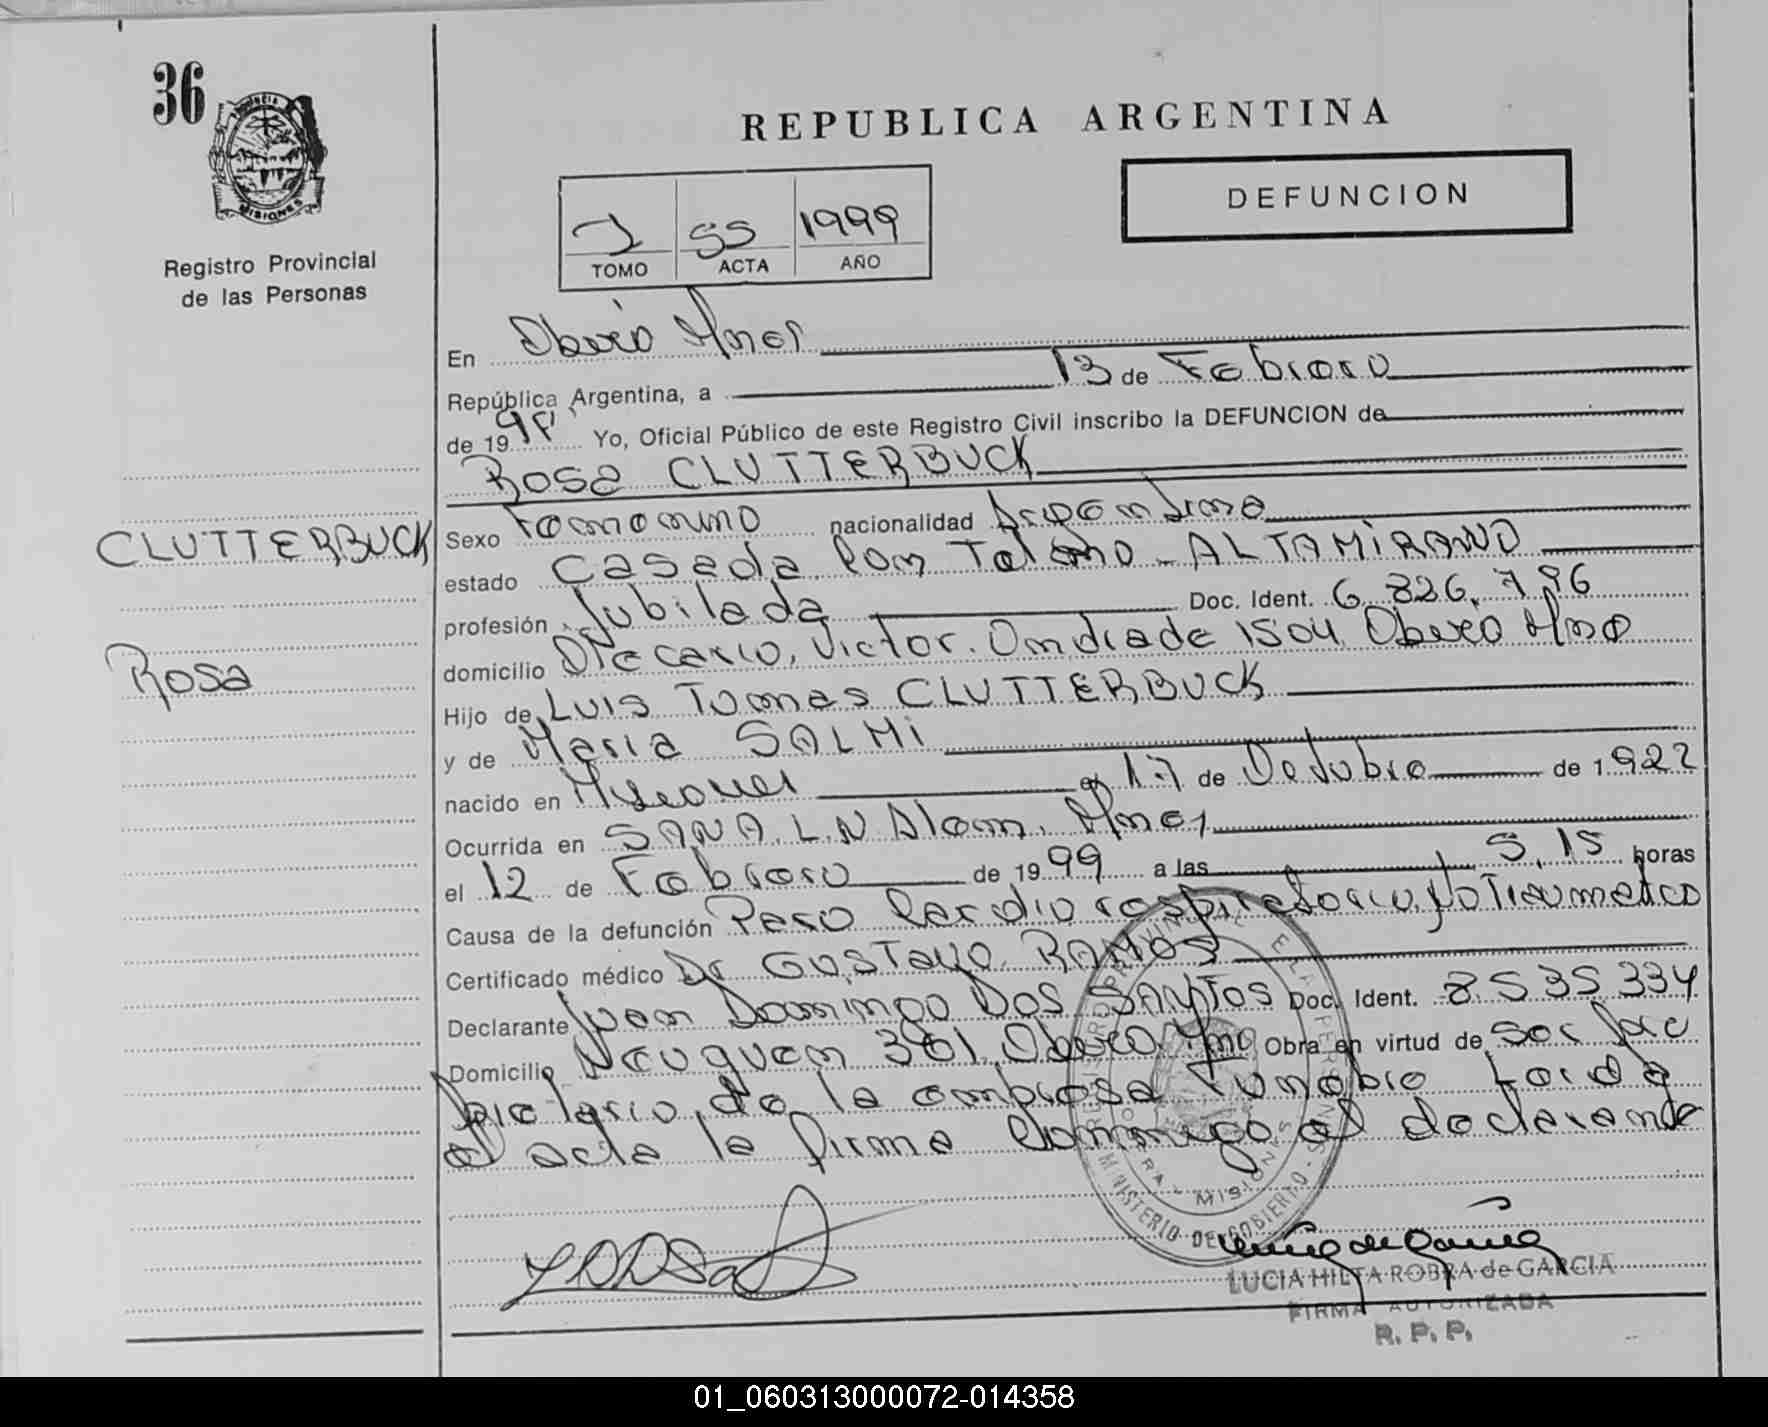 36
MISIONES
Registro Provincial
de las Personas
CLUTTERBUCK
Rosa
REPUBLICA ARGENTINA
DEFUNCION
1 55 1999
TOMO ACTA AÑO
En Oberá Mnes
República Argentina, a 13 de Febrero
de 19 Yo, Oficial Público de este Registro Civil inscribo la DEFUNCION de
Rosa CLUTTERBUCK
Sexo Femenino nacionalidad Argentina
estado Casada Con ALTAMIRANO
profesión Jubilada Doc. Ident. 6.826.796
domicilio Victor Andrade 1504 Oberá Mnes
Hijo de Luis Tomas CLUTTERBUCK
y de Maria SALMI
nacido en Misiones el 17 de Octubre de 1.922
Ocurrida en SANA. L.N Alem. Mnes
el 12 de Febrero de 1999 a las 5,15 horas
Causa de la defunción Paro Cardio respiratorio no Traumatico
Certificado médico Dr GUSTAVO RAMOS
Declarante Juan Domingo DOS SANTOS Doc. Ident. 8.535.334
Domicilio Neuquen 361 Oberá Mnes Obra en virtud de ser
de la empresa Funebre Leida
el acta la firma Conmigo el declarante
MINISTERIO DE GOBIERNO
LUCIA HILTA ROBRA de GARCIA
FIRMA AUTORIZADA
R. P. P.
01_060313000072-014358